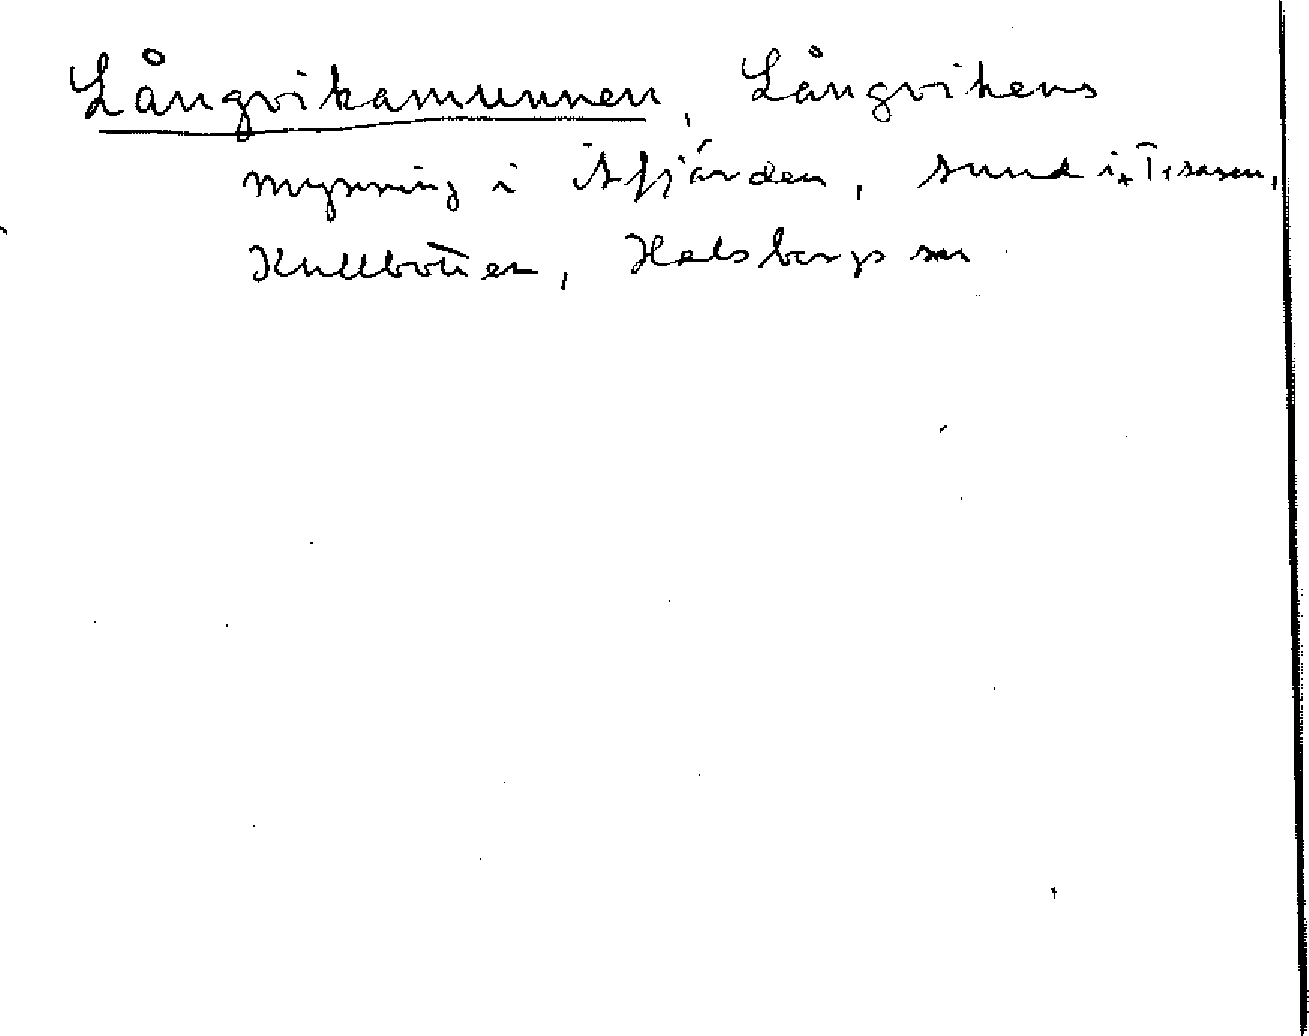 Långvikamunnen, Långvikens
mynning i Åfjärden, sund i Tisaren,
Kullbotten, Halsbergs sn